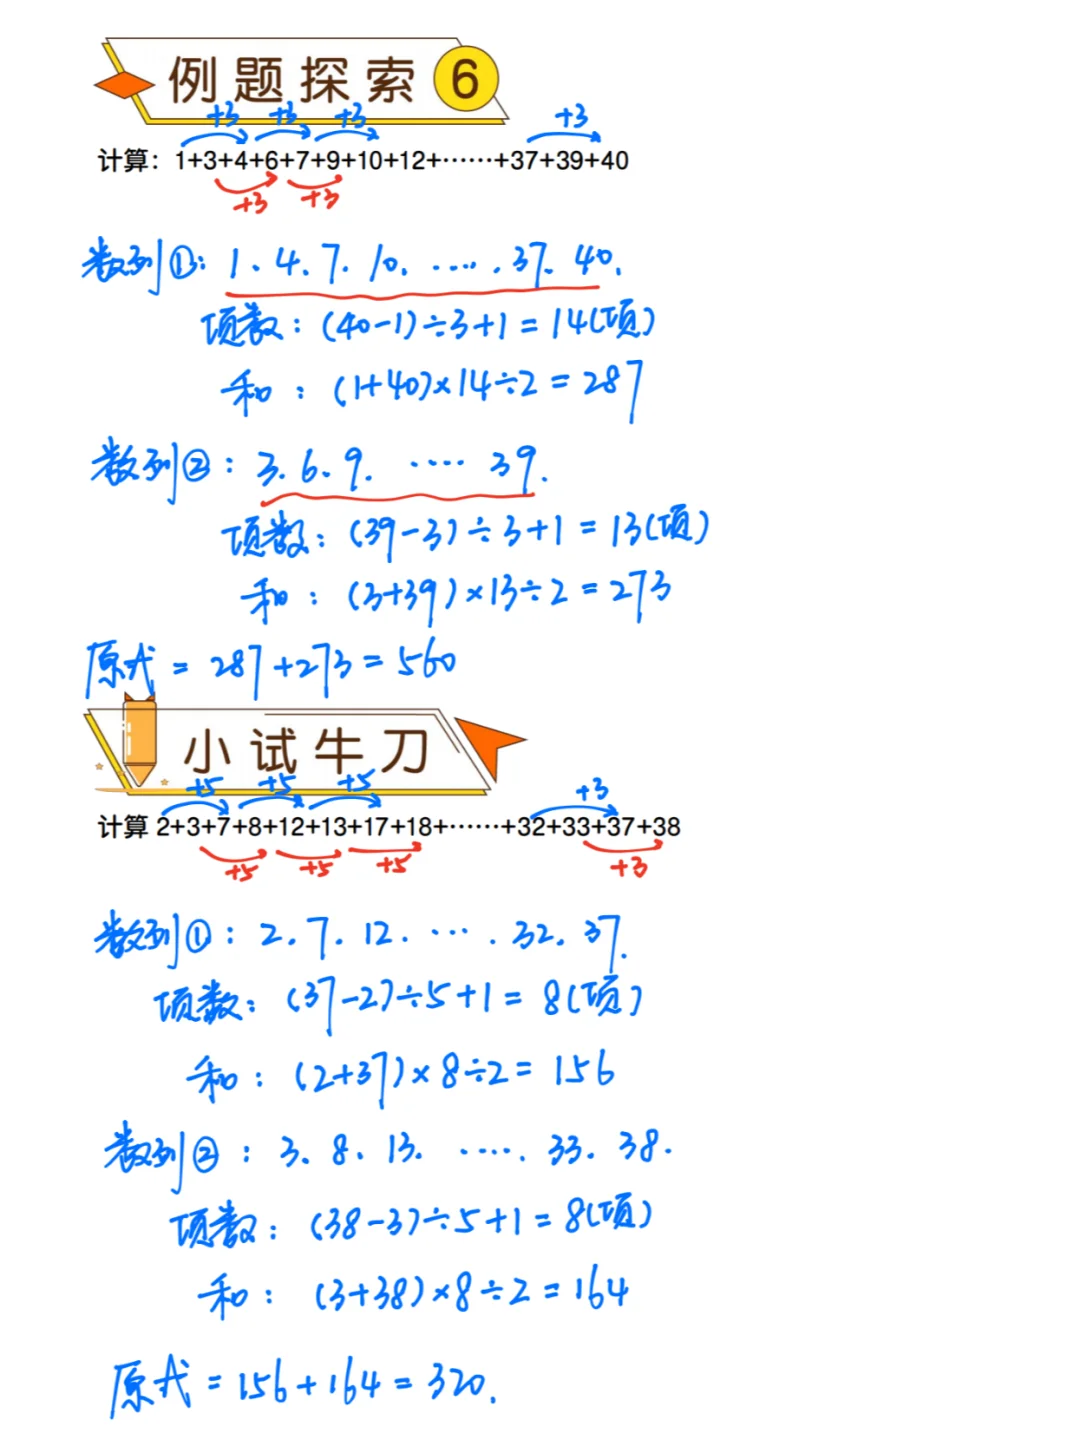 例题探索 6
+3 +3 +3 +3
计算：1+3+4+6+7+9+10+12+……+37+39+40
+3 +3
数列①：1、4、7、10、……、37、40、
项数：(40-1)÷3+1=14(项)
和：(1+40)×14÷2=287
数列②：3、6、9、……39、
项数：(39-3)÷3+1=13(项)
和：(3+39)×13÷2=273
原式=287+273=560
小试牛刀
+5 +5 +5 +3
计算 2+3+7+8+12+13+17+18+……+32+33+37+38
+5 +5 +5 +3
数列①：2、7、12、……、32、37、
项数：(37-2)÷5+1=8(项)
和：(2+37)×8÷2=156
数列②：3、8、13、……、33、38.
项数：(38-3)÷5+1=8(项)
和：(3+38)×8÷2=164
原式=156+164=320.